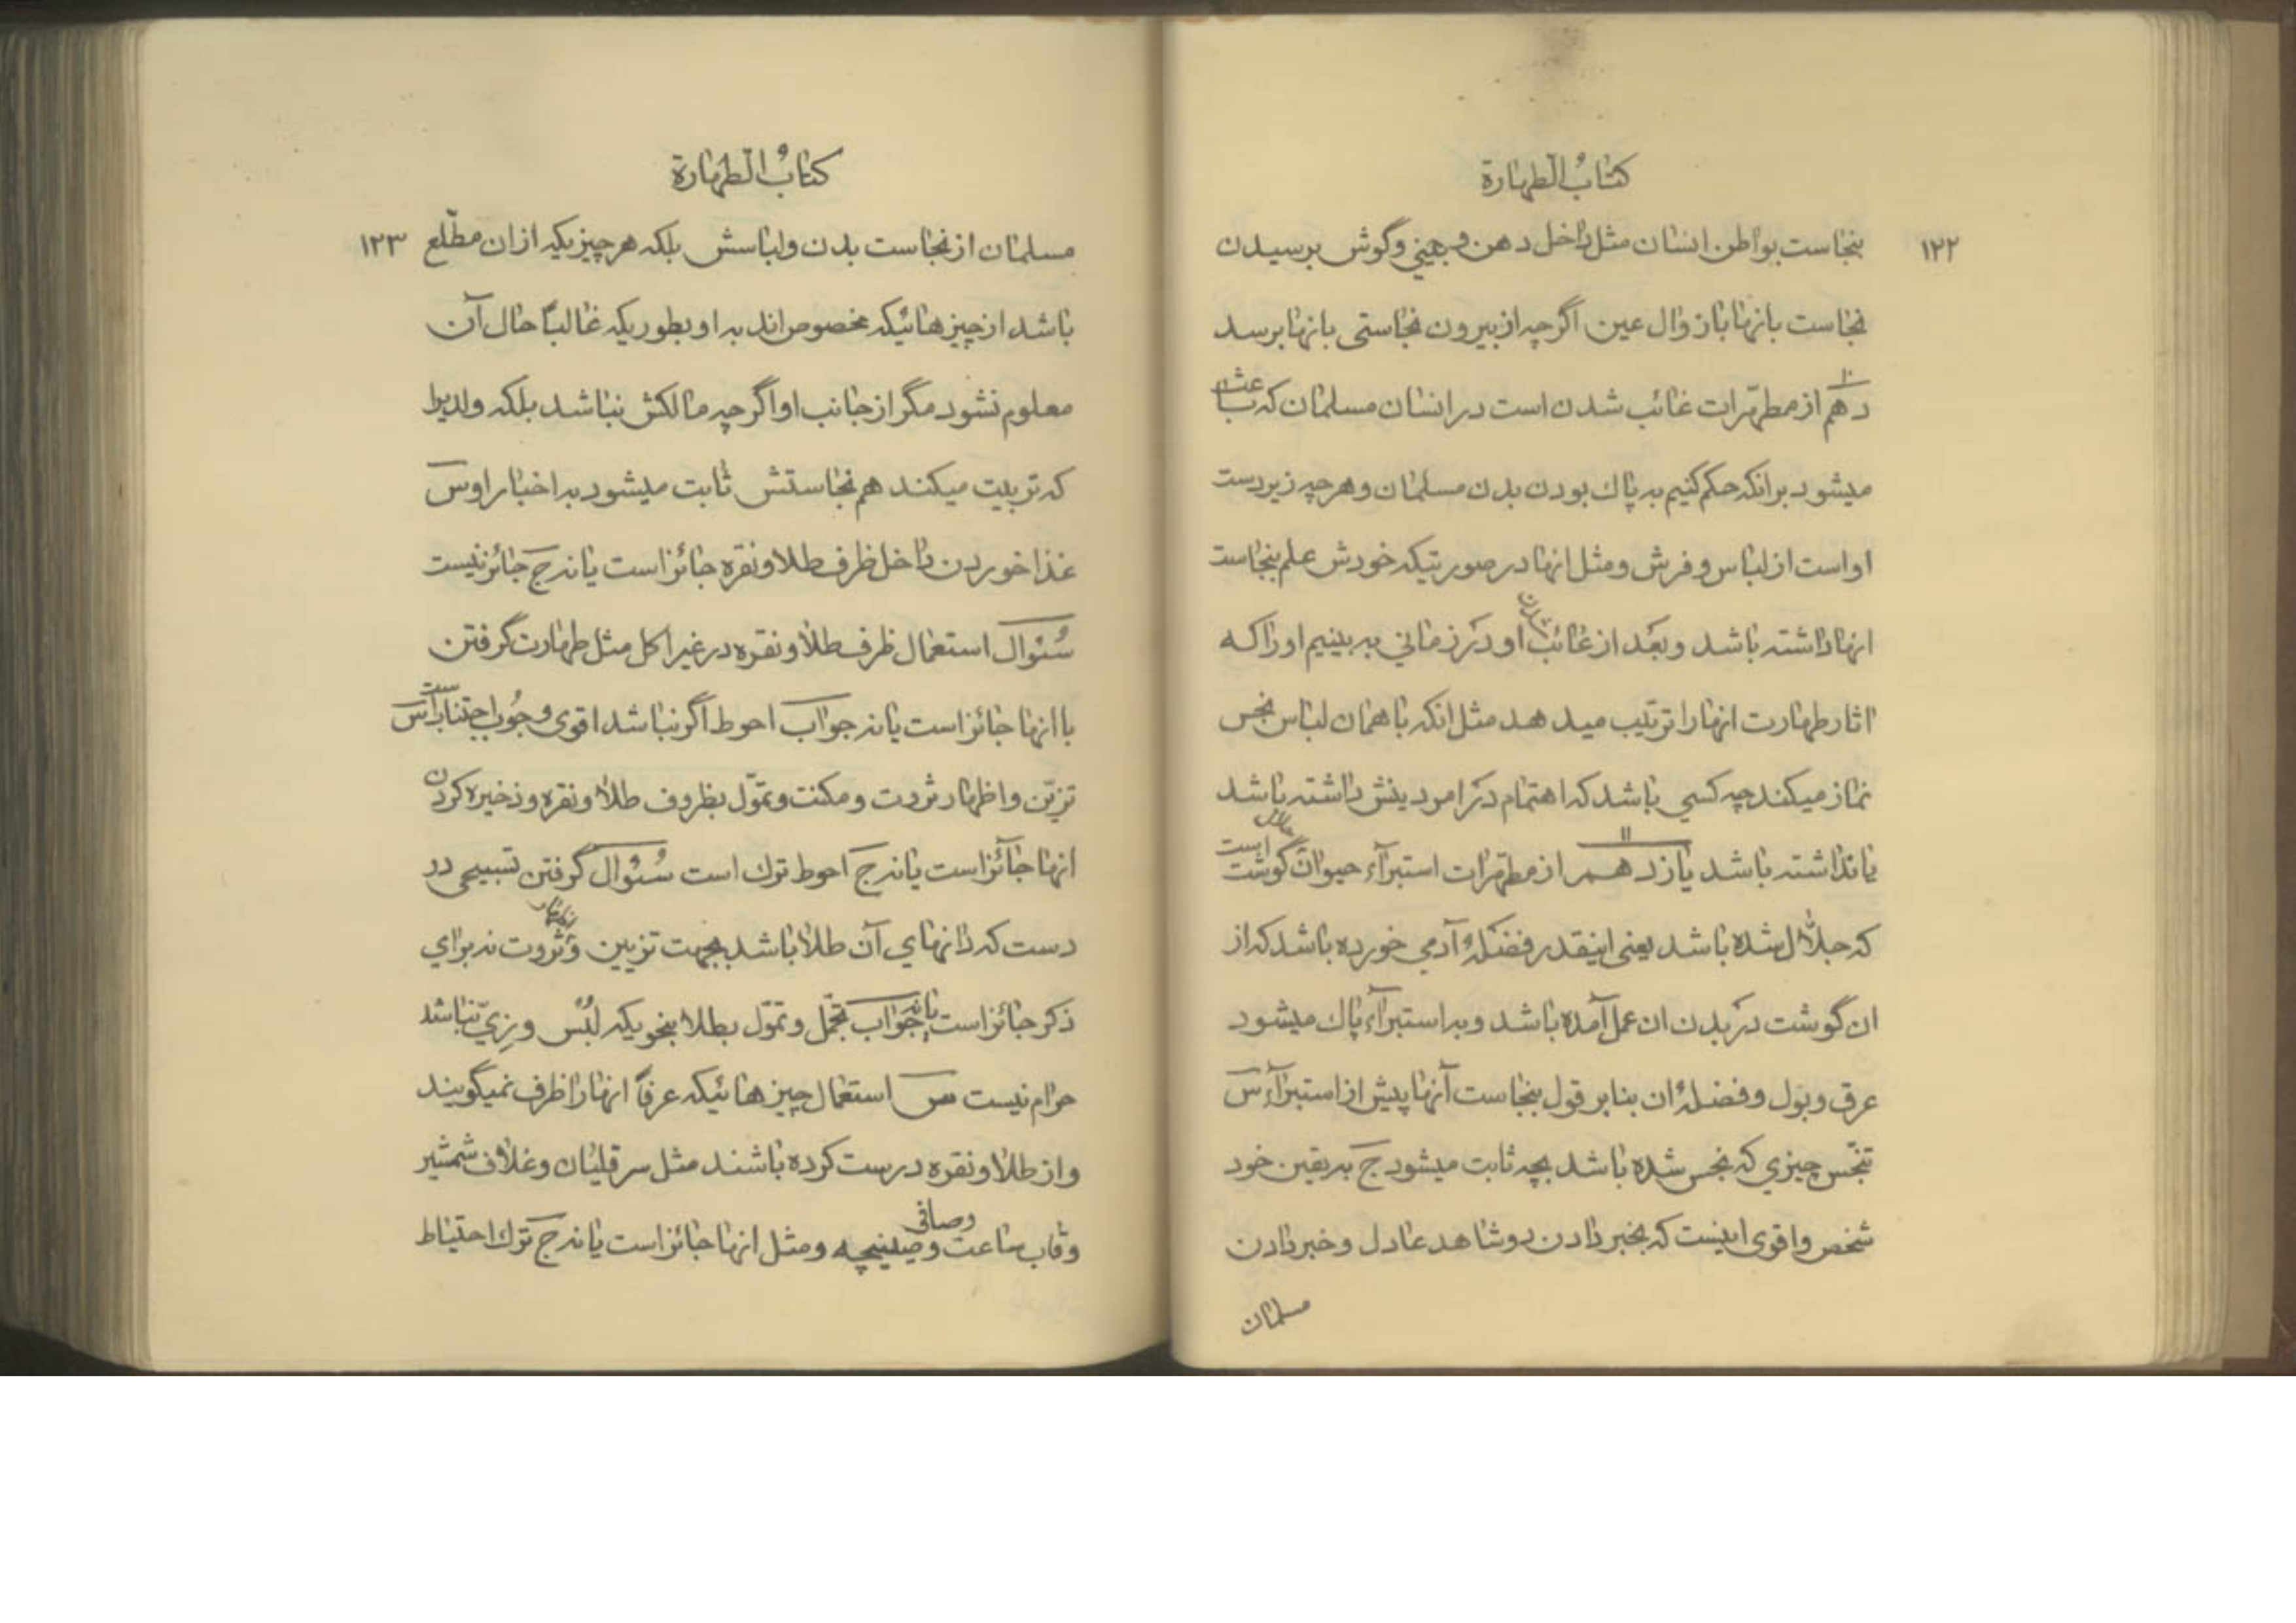 كتابُ الطهارة
١٢٢
بنجاست بواطن انسان مثل داخل دهن و بيني وگوش برسيدن
نجاست بانها بازوال عين اگرچه از بيرون نجاستی بانها برسد
١٠
دهم از مطهّرات غائب شدن است در انسان مسلمان كه باعث
ميشود برانكه حكم كنيم به پاك بودن بدن مسلمان وهرچه زيردست
اواست از لباس و فرش ومثل انها در صورتيكه خودش علم بنجاست
انها داشته باشد وبعد از غائب شدن او در زماني به بينيم اورا كه
اثار طهارت انها را ترتيب ميدهد مثل انكه با همان لباس نجس
نماز ميكند چه كسي باشد كه اهتمام در امر دينش داشته باشد
١١
يا نداشته باشد يازدهم از مطهّرات استبرآء حيوان حلال گوشت است
كه جلّال شده باشد يعنی اينقدر فضلهٔ آدمي خورده باشد كه از
ان گوشت در بدن ان عمل آمده باشد وبه استبرآء پاك ميشود
عرق وبول وفضلهٔ ان بنابر قول بنجاست آنها پيش از استبرآء س
تنجّس چيزي كه نجس شده باشد بچه ثابت ميشود ج به يقين خود
شخص واقوی اينست كه بخبر دادن دو شاهد عادل وخبر دادن
مسلمان
كتابُ الطهارة
١٢٣
مسلمان از نجاست بدن ولباسش بلكه هر چيزيكه از ان مطّلع
باشد از چيزهائيكه مخصوص اند به او بطوريكه غالبًا حال آن
معلوم نشود مگر از جانب او اگرچه مالكش نباشد بلكه ولديرا
كه تربيت ميكند هم نجاستش ثابت ميشود به اخبار او س
غذا خوردن داخل ظرف طلا ونقره جائز است يا نه ج جائز نيست
سُئوال استعمال ظرف طلا ونقره در غير اكل مثل طهارت گرفتن
با انها جائز است يا نه جواب احوط اگر نباشد اقوی وجُوب اجتناب است س
تزيّن واظهار ثروت ومكنت وتموّل بظروف طلا ونقره وذخيره كردن
انها جآئز است يا نه ج احوط ترك است سُئوال گرفتن تسبيحی در
دست كه دانهاي آن طلا باشد بجهت تزيين و اظهار ثروت نه براي
ذكر جائز است يا نه جواب تجمّل وتموّل بطلا بنحويكه لُبْس وزِيّ نباشد
حرام نيست س استعمال چيزهائيكه عرفاً انها را ظرف نميگويند
واز طلا ونقره درست كرده باشند مثل سرقليان وغلاف شمشير
وقاب ساعت وصينيچه وصافی ومثل انها جائز است يا نه ج ترك احتياط